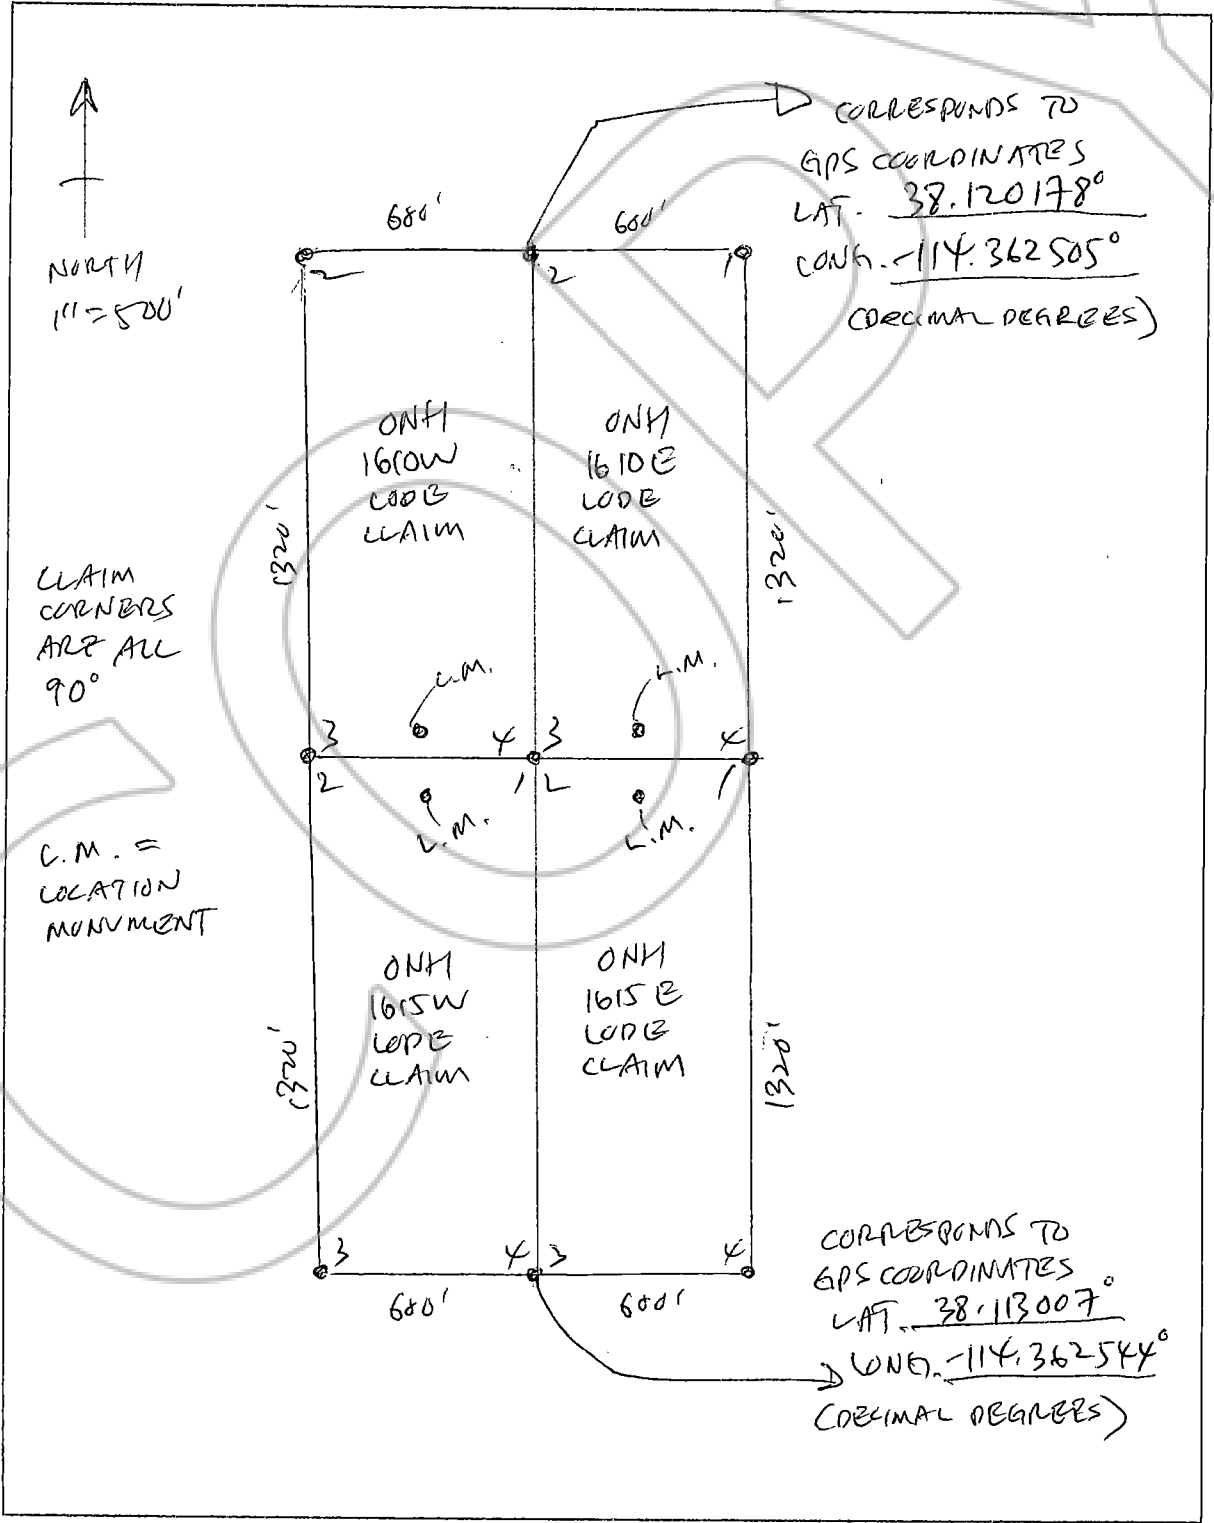 CORRESPONDS TO
GPS COORDINATES
LAT. 38.120178°
LONG. -114.362505°
(DECIMAL DEGREES)
NORTH
1"=500'
600' 600'
2 2 1
ONH
1610W
LODE
CLAIM
ONH
1610E
LODE
CLAIM
1320' 1320'
CLAIM
CORNERS
ARE ALL
90°
L.M. L.M.
3 4 3 4
2 1 2 1
L.M. L.M.
L.M. =
LOCATION
MONUMENT
ONH
1615W
LODE
CLAIM
ONH
1615E
LODE
CLAIM
1320' 1320'
3 4 3 4
600' 600'
CORRESPONDS TO
GPS COORDINATES
LAT. 38.113007°
LONG. -114.362544°
(DECIMAL DEGREES)
COPY